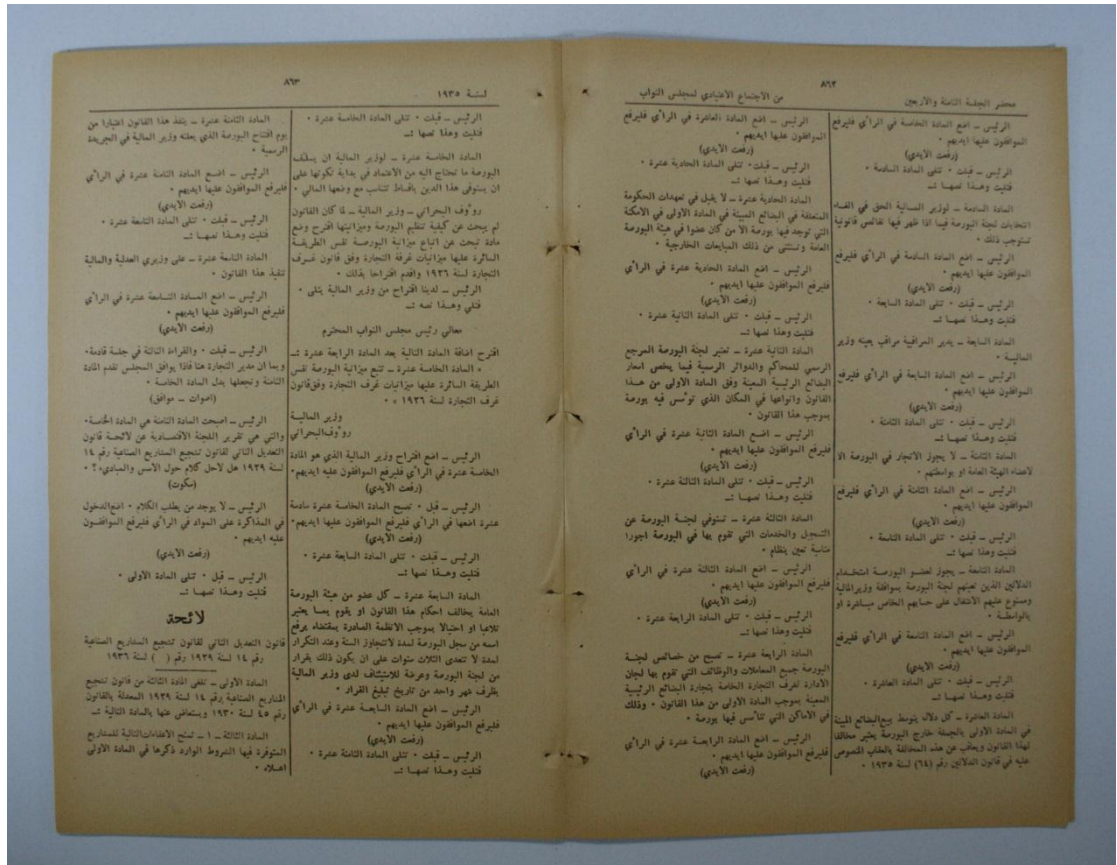 ٨٦٢
محضر الجلسة الثامنة والاربعين
من الاجتماع الاعتيادي لمجلس النواب
الرئيس ــ اضع المادة الخامسة في الرأي فليرفع
الموافقون عليها ايديهم ٠
(رفعت الأيدي)
الرئيس ــ قبلت ٠ تتلى المادة السادسة ٠
فتليت وهـذا نصهـا :ــ
المادة السادسة ــ لوزير المـالية الحق في الغـاء
انتخابات لجنة البورصة فيما اذا ظهر فيها نقائص قانونية
تستوجب ذلك ٠
الرئيس ــ اضع المادة السادسة في الرأي فليرفع
الموافقون عليها ايديهم ٠
(رفعت الأيدي)
الرئيس ــ قبلت ٠ تتلى المادة السابعة ٠
فتليت وهـذا نصهـا :ــ
المادة السابعة ــ يدير المراقبة مراقب يعينه وزير
الماليـة ٠
الرئيس ــ اضع المادة السابعة في الرأي فليرفع
الموافقون عليها ايديهم ٠
(رفعت الأيدي)
الرئيس ــ قبلت ٠ تتلى المادة الثامنة ٠
فتليت وهـذا نصهـا :ــ
المادة الثامنة ــ لا يجوز الاتجار في البورصة الا
لأعضاء الهيئة العامة او بواسطتهم ٠
الرئيس ــ اضع المادة الثامنة في الرأي فليرفع
الموافقون عليها ايديهم ٠
(رفعت الأيدي)
الرئيس ــ قبلت ٠ تتلى المادة التاسعة ٠
فتليت وهذا نصها :ــ
المادة التاسعة ــ يجوز لعضـو البورصـة استخـدام
الدلالين الذين تعينهم لجنة البورصة بموافقة وزيرالمالية
وممنوع عليهم الاشتغال على حسابهم الخاص مبـاشرة او
بالواسطة ٠
الرئيس ــ اضع المادة التاسعة في الرأي فليرفع
الموافقون عليها ايديهم ٠
(رفعت الأيدي)
الرئيس ــ قبلت ٠ تتلى المادة العاشرة ٠
فتليت وهـذا نصهـا :ــ
المادة العاشرة ــ كل دلال يتوسط ببيع البضائع المبينة
في المادة الأولى بالجملة خارج البورصة يعتبر مخالفا
لهذا القانون ويعاقب عن هذه المخالفة بالعقاب المنصوص
عليه في قانون الدلالين رقم (٦٤) لسنة ١٩٣٥ ٠
الرئيس ــ اضع المادة العاشرة في الرأي فليرفع
الموافقون عليها ايديهم ٠
(رفعت الأيدي)
الرئيس ــ قبلت ٠ تتلى المادة الحادية عشرة ٠
فتليت وهـذا نصها :ــ
المادة الحادية عشرة ــ لا يقبل في تعهدات الحكومة
المتعلقة في البضائع المبينة في المادة الأولى في الامكنة
التي توجد فيها بورصة الا من كان عضوا في هيئة البورصة
العامة وتستثنى من ذلك المبايعات الخارجية ٠
الرئيس ــ اضع المادة الحادية عشرة في الرأي
فليرفع الموافقون عليها ايديهم ٠
(رفعت الأيدي)
الرئيس ــ قبلت ٠ تتلى المادة الثانية عشرة ٠
فتليت وهـذا نصها :ــ
المادة الثانية عشرة ــ تعتبر لجنة البورصة المرجع
الرسمي للمحاكم والدوائر الرسمية فيما يخص اسعار
البضائع الرئيسية المعينة وفق المادة الأولى من هـذا
القانون وانواعها في المكان الذي تؤسس فيه بورصة
بموجب هذا القانون ٠
الرئيس ــ اضـع المادة الثانية عشرة في الرأي
فليرفع الموافقون عليها ايديهم ٠
(رفعت الأيدي)
الرئيس ــ قبلت ٠ تتلى المادة الثالثة عشرة ٠
فتليت وهـذا نصهـا :ــ
المادة الثالثة عشرة ــ تستوفي لجنـة البورصة عن
التسجيل والخدمات التي تقوم بها في البورصة اجورا
مناسبة تعين بنظام ٠
الرئيس ــ اضع المادة الثالثة عشرة في الرأي
فليرفع الموافقون عليها ايديهم ٠
(رفعت الأيدي)
الرئيس ــ قبلت ٠ تتلى المادة الرابعة عشرة ٠
فتليت وهـذا نصها :ــ
المادة الرابعة عشرة ــ تصبح من خصائص لجنـة
البورصة جميع المعاملات والوظائف التي تقوم بها لجان
الادارة لغرف التجارة الخاصة بتجارة البضائع الرئيسية
المعينة بموجب المادة الأولى من هذا القانون ٠ وذلك
في الاماكن التي تتأسس فيها بورصة ٠
الرئيس ــ اضع المادة الرابعة عشرة في الرأي
فليرفع الموافقون عليها ايديهم ٠
(رفعت الأيدي)
٨٦٣
لسنـة ١٩٣٥
الرئيس ــ قبلت ٠ تتلى المادة الخامسة عشرة ٠
فتليت وهذا نصها :ــ
المادة الخامسة عشرة ــ لوزير المالية ان يسلـف
البورصة ما تحتاج اليه من الاعتماد في بداية تكونها على
ان يستوفى هذا الدين باقساط تتناسب مع وضعها المالي ٠
رؤوف البحراني ــ وزير المالية ــ لما كان القانون
لم يبحث عن كيفية تنظيم البورصة وميزانيتها اقترح وضع
مادة تبحث عن اتباع ميزانية البورصـة نفس الطريقـة
السائرة عليها ميزانيات غرفة التجارة وفق قانون غـرف
التجارة لسنة ١٩٢٦ واقدم اقتراحا بذلك ٠
الرئيس ــ لدينا اقتراح من وزير المالية يتلى ٠
فتلي وهـذا نصه :ــ
معالي رئيس مجلس النواب المحترم
اقترح اضافة المادة التالية بعد المادة الرابعة عشرة :ــ
« المادة الخامسة عشرة ــ تتبع ميزانية البورصة نفس
الطريقة السائرة عليها ميزانيات غرف التجارة وفق قانون
غرف التجارة لسنة ١٩٢٦ » ٠
وزير الماليـة
رؤوف البحراني
الرئيس ــ اضع اقتراح وزير المالية الذي هو المادة
الخامسة عشرة في الرأي فليرفع الموافقون عليه ايديهم٠
(رفعت الأيدي)
الرئيس ــ قبلت ٠ تصبح المادة الخامسة عشرة سادسة
عشرة اضعها في الرأي فليرفع الموافقون عليها ايديهم٠
(رفعت الأيدي)
الرئيس ــ قبلت ٠ تتلى المادة السابعة عشرة ٠
فتليت وهـذا نصها :ــ
المادة السابعة عشرة ــ كل عضو من هيئة البورصة
العامة يخالف احكام هذا القانون او يقوم بمـا يعتبر
تلاعبا او احتيالا بموجب الانظمة الصادرة بمقتضاه يرفع
اسمه من سجل البورصة لمدة لاتتجاوز السنة وعند التكرار
لمدة لا تتعدى الثلاث سنوات على ان يكون ذلك بقرار
من لجنة البورصة وعرضة للاستئناف لدى وزير المالية
بظرف شهر واحد من تاريخ تبليغ القرار ٠
الرئيس ــ اضع المادة السابعـة عشرة في الرأي
فليرفع الموافقون عليها ايديهم ٠
(رفعت الأيدي)
الرئيس ــ قبلت ٠ تتلى المادة الثامنة عشرة ٠
فتليت وهـذا نصهـا :ــ
المادة الثامنة عشرة ــ ينفذ هذا القانون اعتبارا من
يوم افتتاح البورصة الذي يعلنه وزير المالية في الجريدة
الرسمية ٠
الرئيس ــ اضـع المادة الثامنة عشرة في الرأي
فليرفع الموافقون عليها ايديهم ٠
(رفعت الأيدي)
الرئيس ــ قبلت ٠ تتلى المادة التاسعة عشرة ٠
فتليت وهـذا نصهـا :ــ
المادة التاسعة عشرة ــ على وزيري العدلية والمالية
تنفيذ هذا القانون ٠
الرئيس ــ اضع المـادة التـاسعة عشرة في الرأي
فليرفع الموافقون عليها ايديهم ٠
(رفعت الأيدي)
الرئيس ــ قبلت ٠ والقراءة الثالثة في جلسـة قادمة٠
وبما ان مدير التجارة هنا فاذا يوافق المجلس نقدم المادة
الثامنة ونجعلها بدل المادة الخامسة ٠
(اصوات ــ موافق)
الرئيس ــ اصبحت المادة الثامنة هي المادة الخامسة٠
والتي هي تقرير اللجنة الاقتصـادية عن لائحـة قانون
التعديل الثاني لقانون تشجيع المشاريع الصناعية رقم ١٤
لسنة ١٩٢٩ هل لأحد كلام حول الأسس والمبادىء؟ ٠
(سكوت)
الرئيس ــ لا يوجد من يطلب الكلام ٠ اضع الدخول
في المذاكرة على المواد في الرأي فليرفع الموافقـون
عليه ايديهم ٠
(رفعت الأيدي)
الرئيس ــ قبل ٠ تتلى المادة الأولى ٠
فتليت وهـذا نصهـا :ــ
لائحة
قانون التعديل الثاني لقانون تشجيع المشاريع الصناعية
رقم ١٤ لسنة ١٩٢٩ رقم ( ) لسنة ١٩٣٦
المادة الأولى ــ تلغى المادة الثالثة من قانون تشجيع
المشاريع الصناعية رقم ١٤ لسنة ١٩٢٩ المعدلة بالقانون
رقم ٤٥ لسنة ١٩٣٠ ويستعاض عنها بالمادة التالية :ــ
المادة الثالثة ــ ١ ــ تمنح الاعفاءات التالية للمشاريع
المتوفرة فيها الشروط الوارد ذكرها في المادة الأولى
اعـلاه ٠